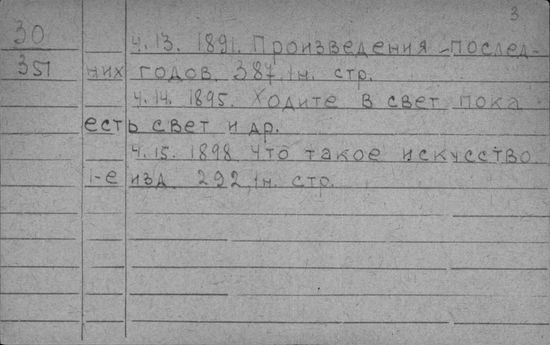 3
30
ч. 13. 1891. Произведения послед-
351 них годов. 387, 1н. стр.
ч. 14. 1895. Ходите в свет пока
есть свет и др.
ч. 15. 1898 Что такое искусство.
1-е изд. 292, 1н. стр.